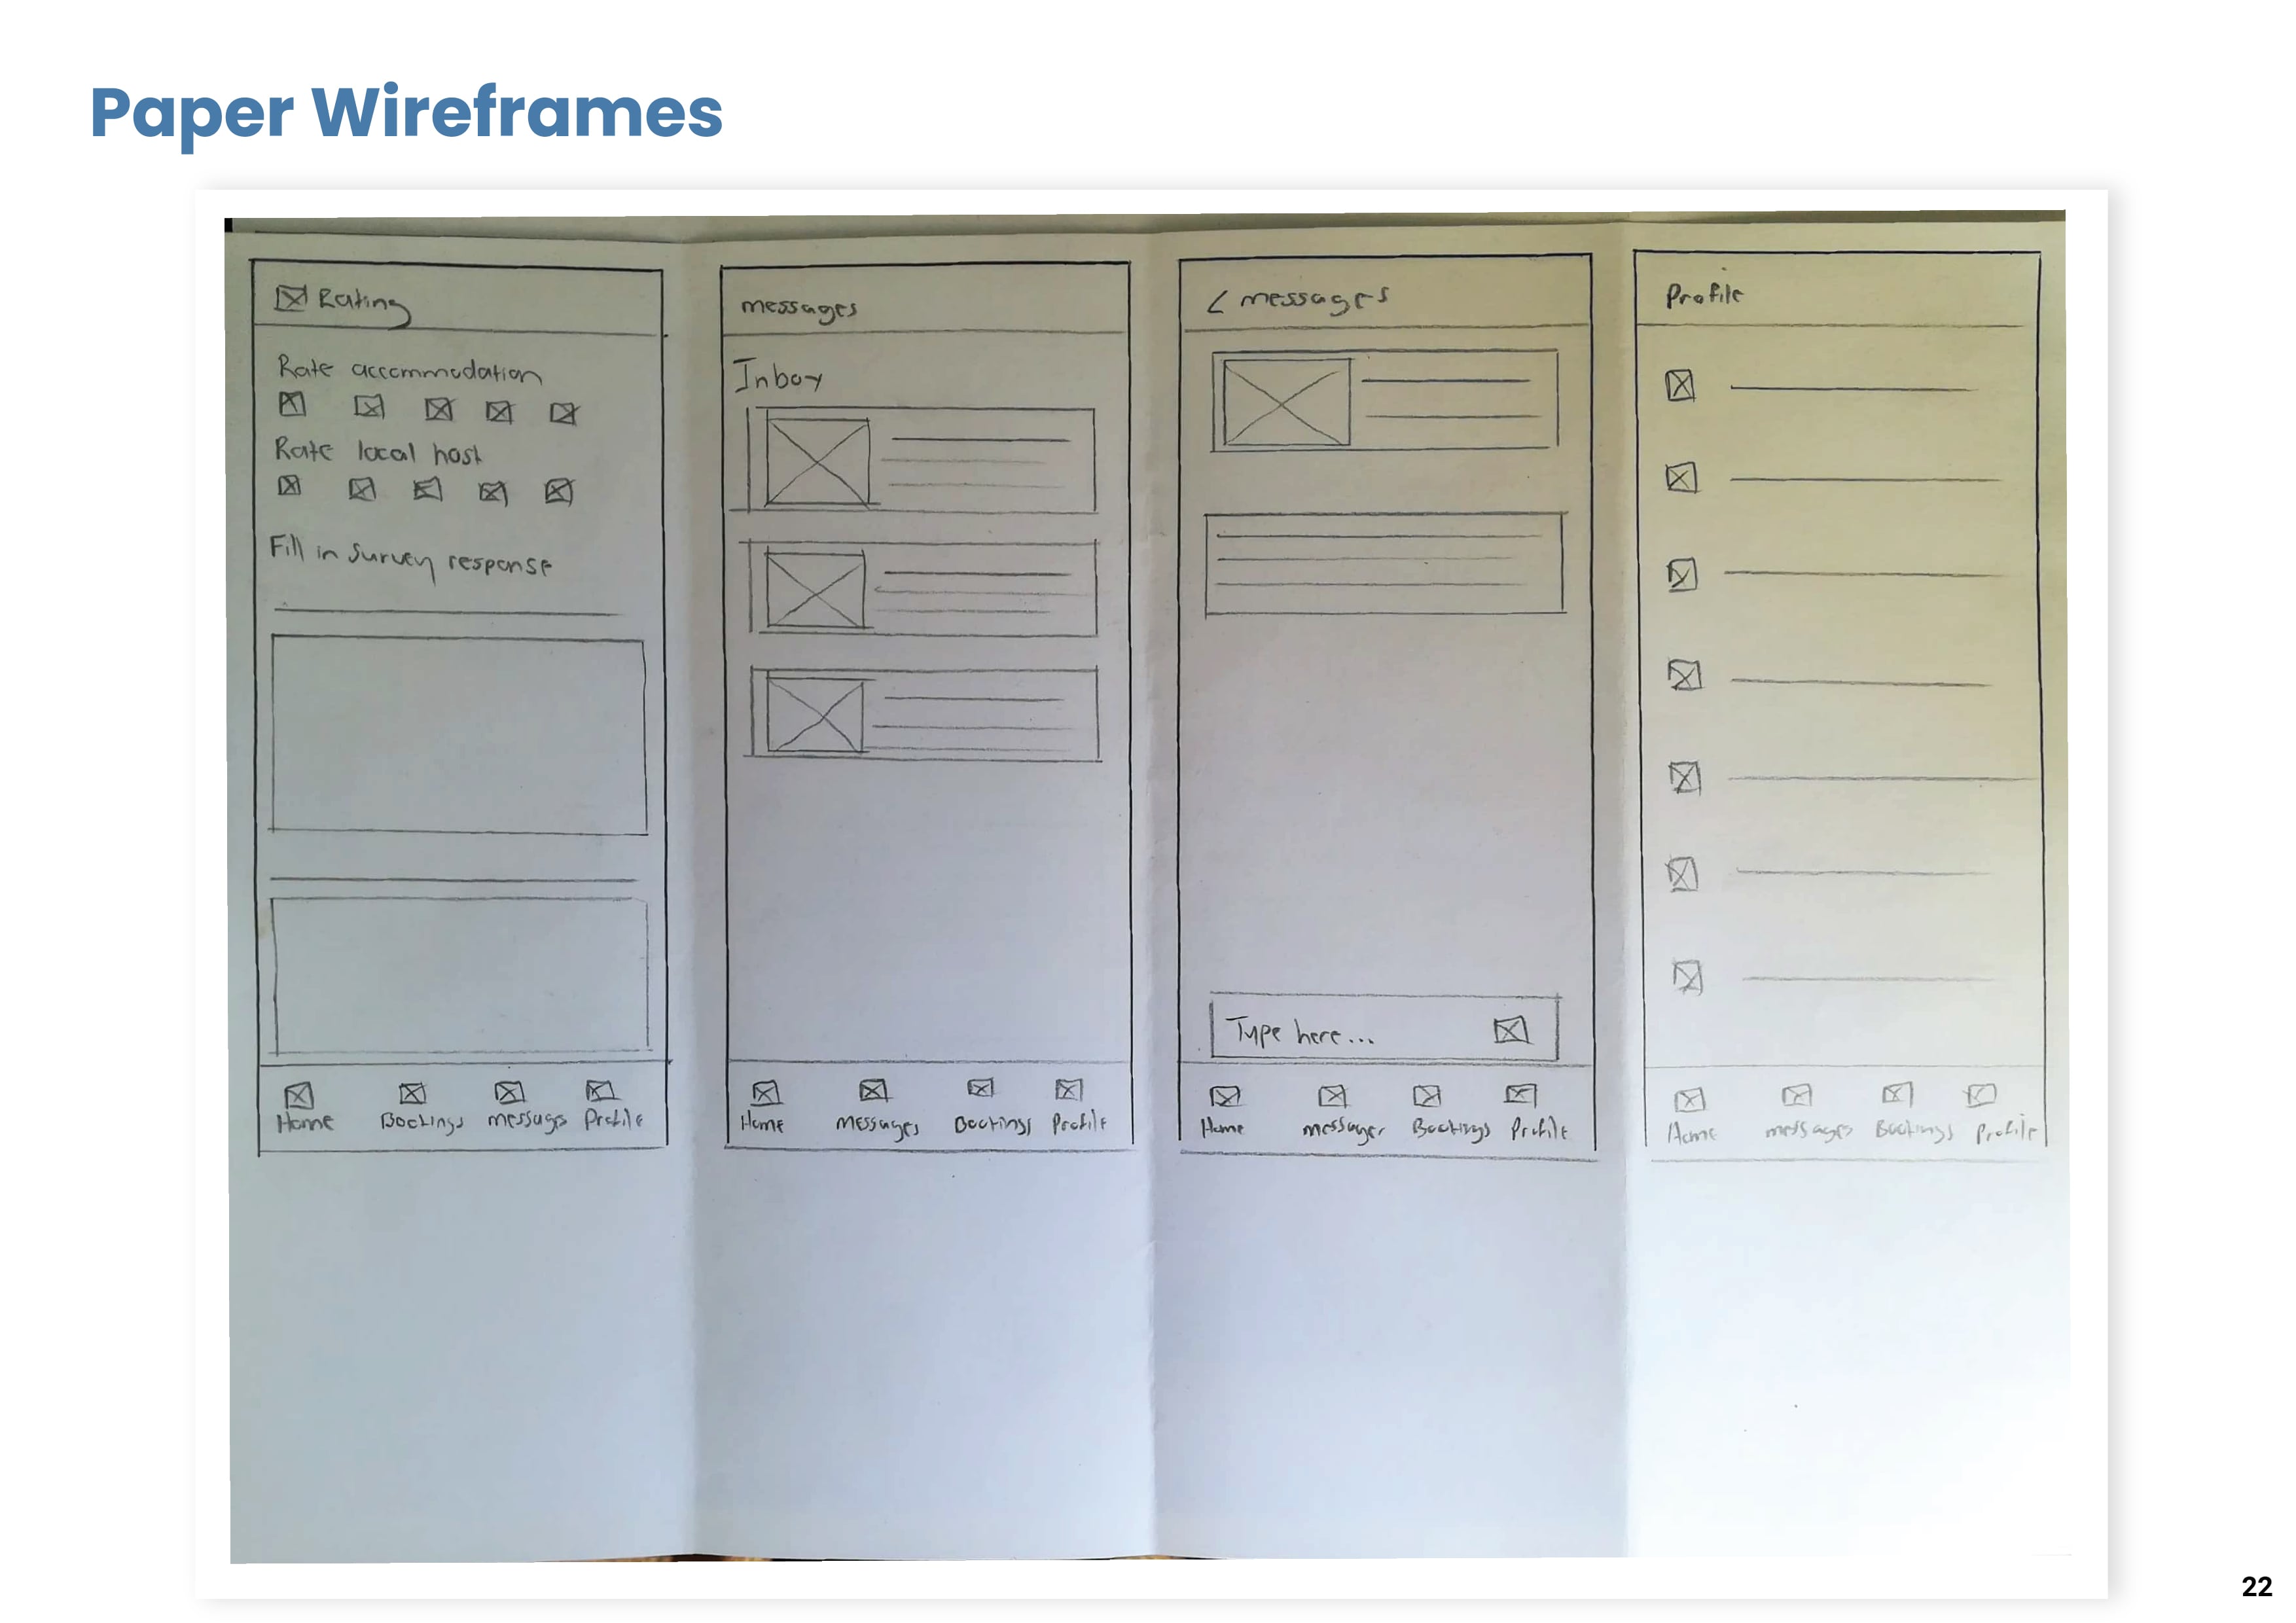 Paper Wireframes
Rating
Rate accommodation
Rate local host
Fill in survey response
Home Bookings messages Profile
messages
Inbox
Home messages Bookings Profile
< messages
Type here...
Home messages Bookings Profile
Profile
Home messages Bookings Profile
22